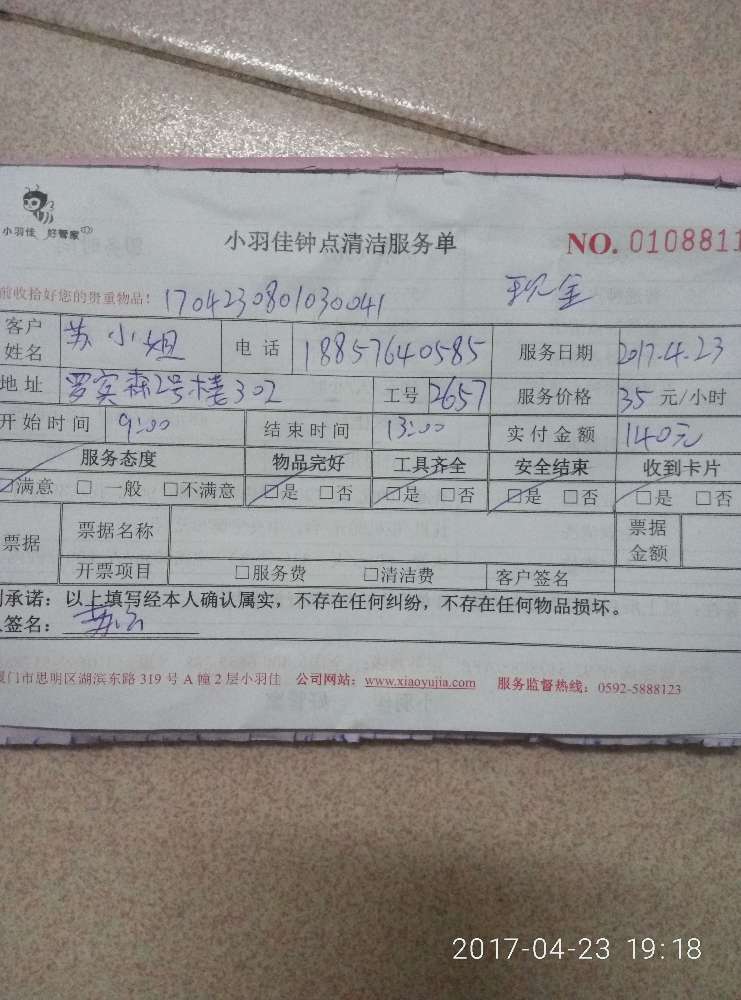 小羽佳 好管家
小羽佳钟点清洁服务单 NO. 0108811
前收拾好您的贵重物品! 1704230801030041 现金
客户姓名 苏小姐 电话 18857640585 服务日期 2017.4.23
地址 罗宾森2号楼302 工号 2657 服务价格 35元/小时
开始时间 9:00 结束时间 13:00 实付金额 140元
服务态度 物品完好 工具齐全 安全结束 收到卡片
□满意 □一般 □不满意 □是 □否 □是 □否 □是 □否 □是 □否
票据 票据名称 票据金额
开票项目 □服务费 □清洁费 客户签名
承诺：以上填写经本人确认属实，不存在任何纠纷，不存在任何物品损坏。
签名：
门市思明区湖滨东路319号A幢2层小羽佳 公司网站：www.xiaoyujia.com 服务监督热线：0592-5888123
2017-04-23 19:18